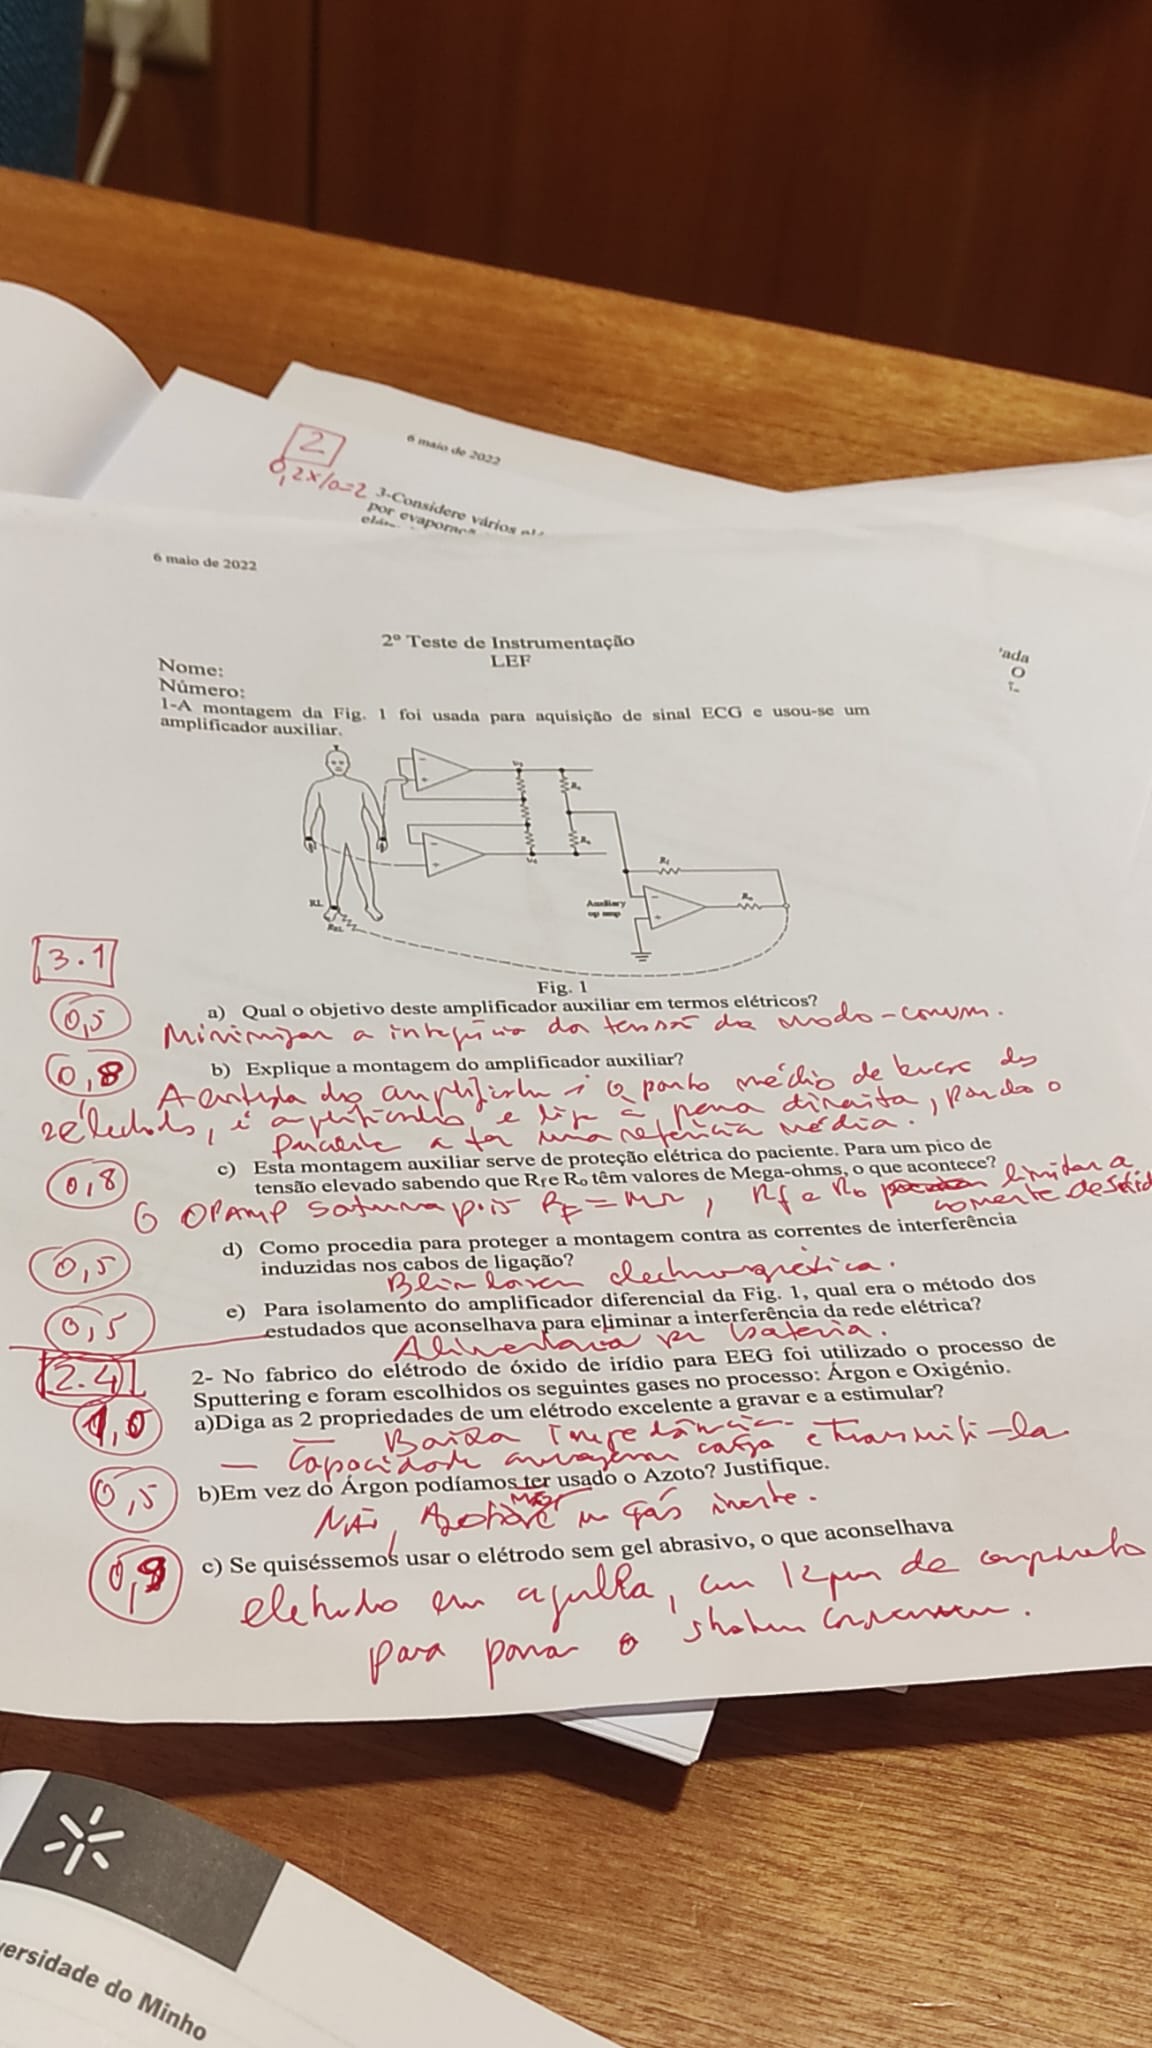 2
6 maio de 2022
0,2x10=2
3-Considere vários
por evaporaç
6 maio de 2022
2º Teste de Instrumentação
LEF
'ada
O
Nome:
Número:
1-A montagem da Fig. 1 foi usada para aquisição de sinal ECG e usou-se um
amplificador auxiliar.
Rf
Auxiliary
op amp
Ro
RL
RRL
Fig. 1
3.1
a) Qual o objetivo deste amplificador auxiliar em termos elétricos?
0,5
Minimizar a da tensão do modo-comum.
b) Explique a montagem do amplificador auxiliar?
0,8
A entrada do é o ponto médio de dos
, é e à perna direita, o
paciente a ter uma referência média.
c) Esta montagem auxiliar serve de proteção elétrica do paciente. Para um pico de
tensão elevado sabendo que Rf e Ro têm valores de Mega-ohms, o que acontece?
0,8
O OPAMP satura pois RF = , Rf e Ro limitar a
corrente de
d) Como procedia para proteger a montagem contra as correntes de interferência
induzidas nos cabos de ligação?
0,5
Blindagem
e) Para isolamento do amplificador diferencial da Fig. 1, qual era o método dos
estudados que aconselhava para eliminar a interferência da rede elétrica?
0,5
bateria.
2.4
2- No fabrico do elétrodo de óxido de irídio para EEG foi utilizado o processo de
Sputtering e foram escolhidos os seguintes gases no processo: Árgon e Oxigénio.
a)Diga as 2 propriedades de um elétrodo excelente a gravar e a estimular?
1,0
— Baixa Impedância
— Capacidade carga e transmiti-la
b)Em vez do Árgon podíamos ter usado o Azoto? Justifique.
0,5
Não, Azoto não é um gás inerte.
c) Se quiséssemos usar o elétrodo sem gel abrasivo, o que aconselhava
0,9
eletrodo em agulha, com 12µm de comprimento
para o
versidade do Minho